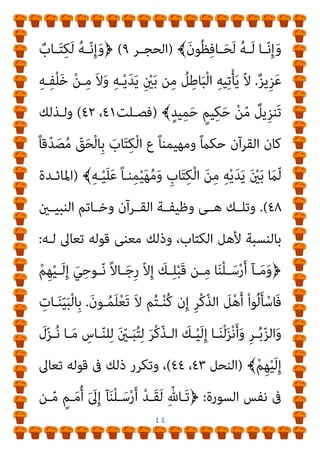 وَإِنَّـا لَـهُ لَـحَـافِظُونَ﴾ (الحجـر ٩) ﴿وَإِنَّـهُ لَكِتَـابٌ
عَزِيزٌ. لاَّ يَأْتِيهِ الْبَاطِلُ مِن بَيْنِ يَدَيْـهِ وَلاَ مِـنْ خَلْفِـهِ
تَنزِيلٌ مِّنْ حَكِيمٍ حَمِيدٍ﴾ (فصلـت٤١، ٤٢) ولـذلك
كان القرآن حكماً ومهيمناً ع الْكِتَابَ بِالْحَقِّ مُصَدِّقاً
لِّمَا بَيْنَ يَدَيْهِ مِنَ الْكِتَابِ وَمُهَيْمِنـاً عَلَيْـهِ﴾ (المائـدة
٤٨). وتلـك هـى وظيفـة القـرآن وخـاتم النبيـين
بالنسبة لأهل الكتاب، وذلك معنى قوله تعالى لـه:
﴿وَمَـآ أَرْسَـلْنَا مِـن قَبْلِـكَ إِلاَّ رِجَـالاً نُّـوحِيۤ إِلَـيْهِمْ
فَاسْأَلُواْ أَهْلَ الذِّكْرِ إِن كُنْـتُم لاَ تَعْلَمُـونَ. بِالْبَيِّنَـاتِ
وَالزُّبُـرِ وَأَنْزَلْنَـا إِلَيْـكَ الـذِّكْرَ لِتُبَـيِّنَ لِلنَّـاسِ مَـا نُـزِّلَ
إِلَيْهِمْ﴾ (النحل ٤٣، ٤٤)، وتكرر ذلك فى قوله تعالى
فى نفس السورة: ﴿تَٱللهِ لَقَـدْ أَرْسَـلْنَآ إِلَىٰ أُمَـمٍ مِّـن
٤٤